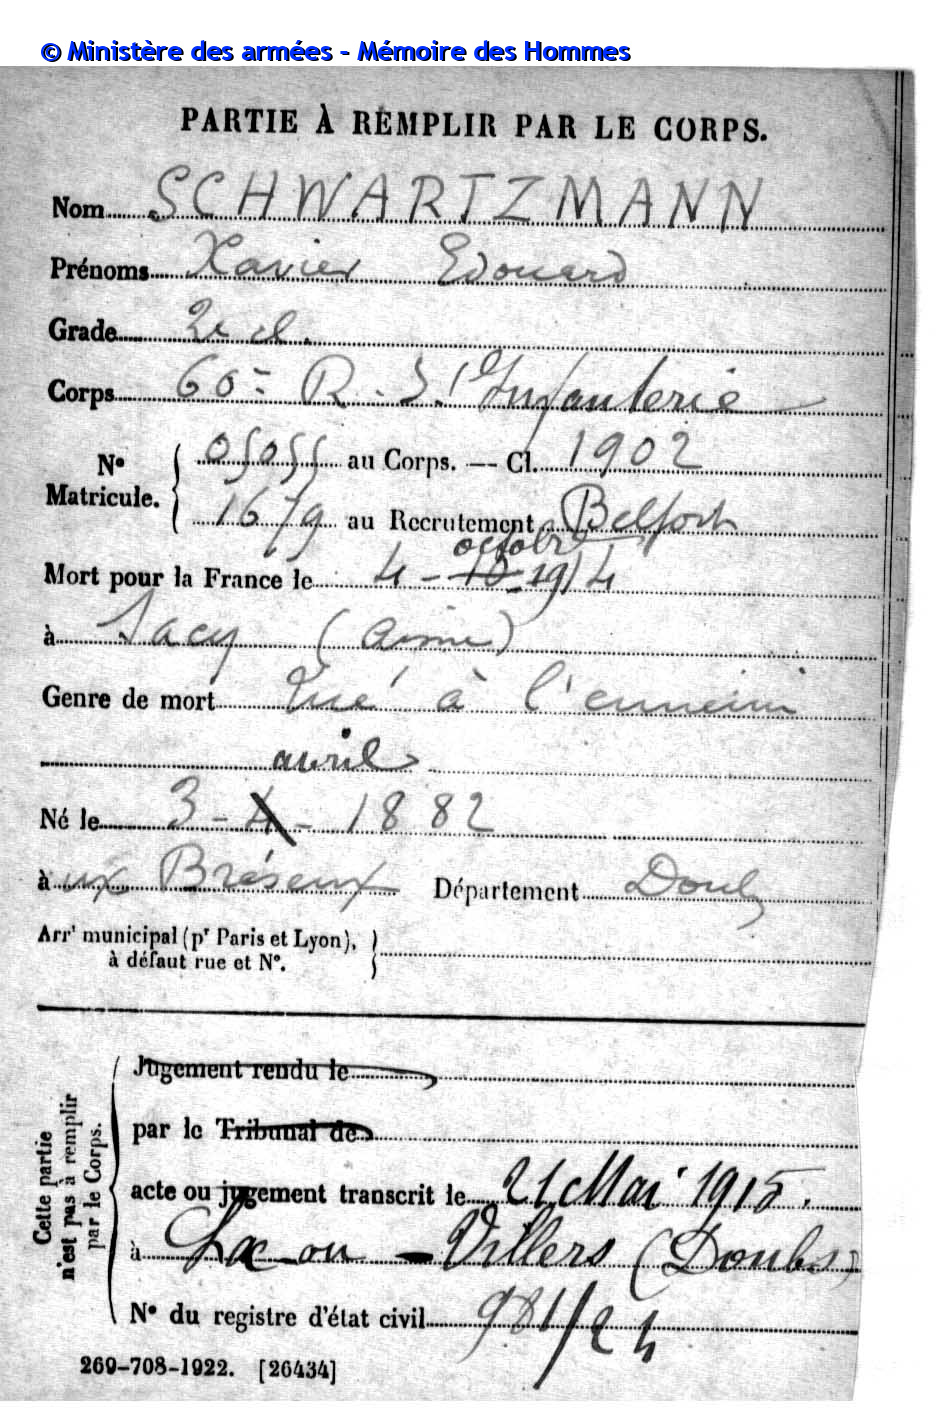 © Ministère des armées - Mémoire des Hommes
PARTIE À REMPLIR PAR LE CORPS.
Nom SCHWARTZMANN
Prénoms Xavier Edouard
Grade 2e cl.
Corps 60e R. d'Infanterie
N° Matricule. 05055 au Corps. — Cl. 1902
1679 au Recrutement Belfort
octobre
Mort pour la France le 4 - 10 - 1914
à Sacy (Aisne)
Genre de mort Tué à l'ennemi
avril
Né le 3 - 4 - 1882
à ux Bréseux Département Doubs
Arrt municipal (pr Paris et Lyon),
à défaut rue et N°.
Cette partie n'est pas à remplir par le Corps.
Jugement rendu le
par le Tribunal de
acte ou jugement transcrit le 21 Mai 1915.
à Lac ou Villers (Doubs)
N° du registre d'état civil 981/24
269-708-1922. [26434]